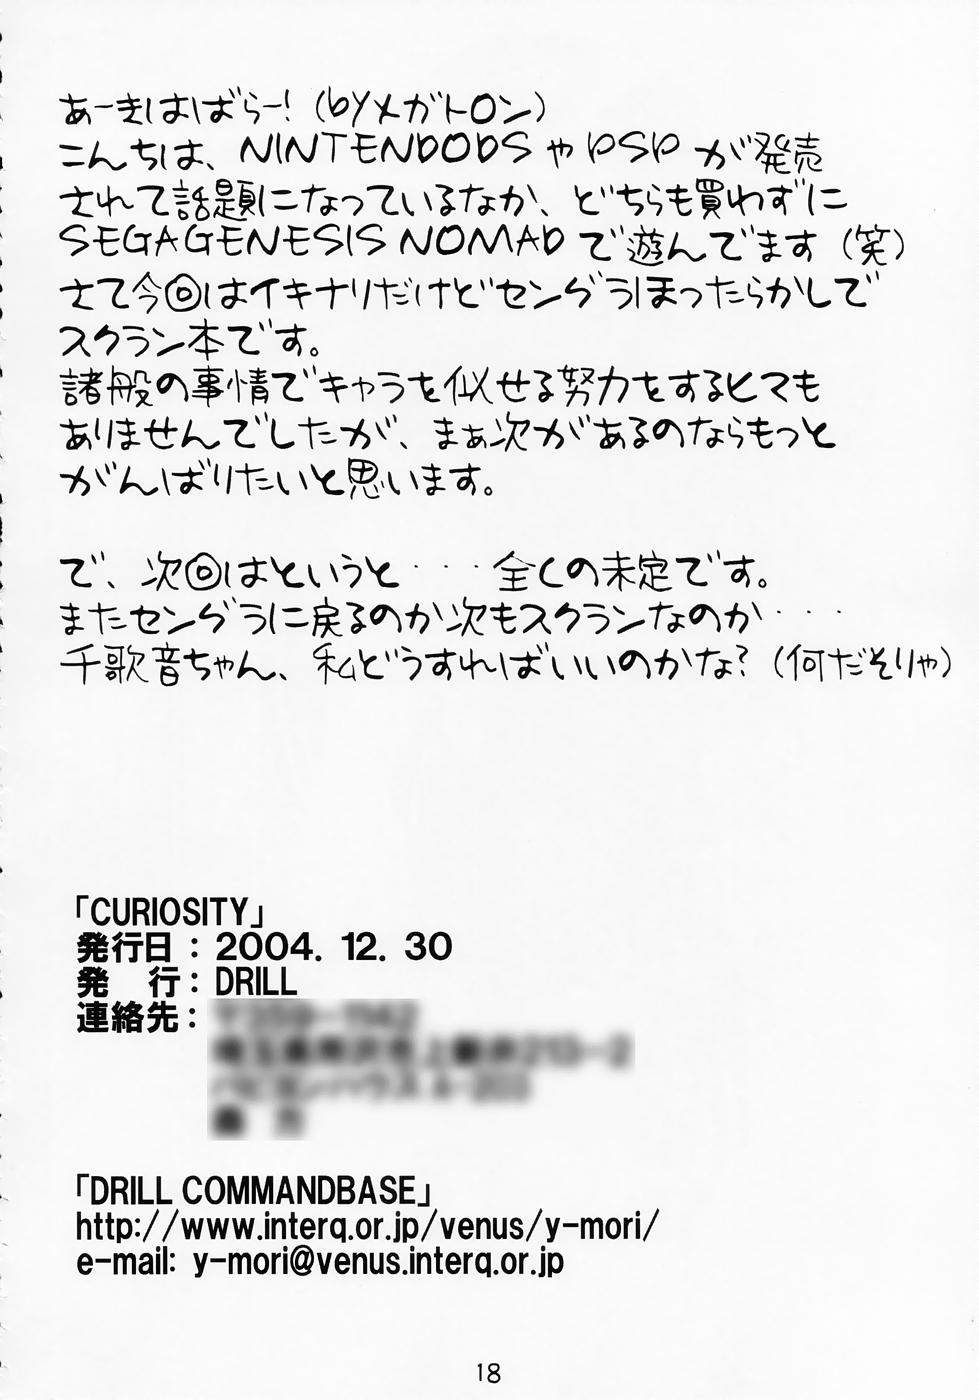 あーきはばらー!(byメガトロン)
こんちは、NINTENDODSやPSPが発売
されて話題になっているなか、どちらも買わずに
SEGAGENESIS NOMADで遊んでます(笑)
さて今回はイキナリだけどセングラほったらかしで
スクラン本です。
諸般の事情でキャラを似せる努力をするヒマも
ありませんでしたが、まぁ次があるのならもっと
がんばりたいと思います。
で、次回はというと・・・全くの未定です。
またセングラに戻るのか次もスクランなのか・・・・
千歌音ちゃん、私どうすればいいのかな?(何だそりゃ)
「CURIOSITY」
発行日:2004.12.30
発 行:DRILL
連絡先:
「DRILL COMMANDBASE」
http://www.interq.or.jp/venus/y-mori/
e-mail: y-mori@venus.interq.or.jp
18